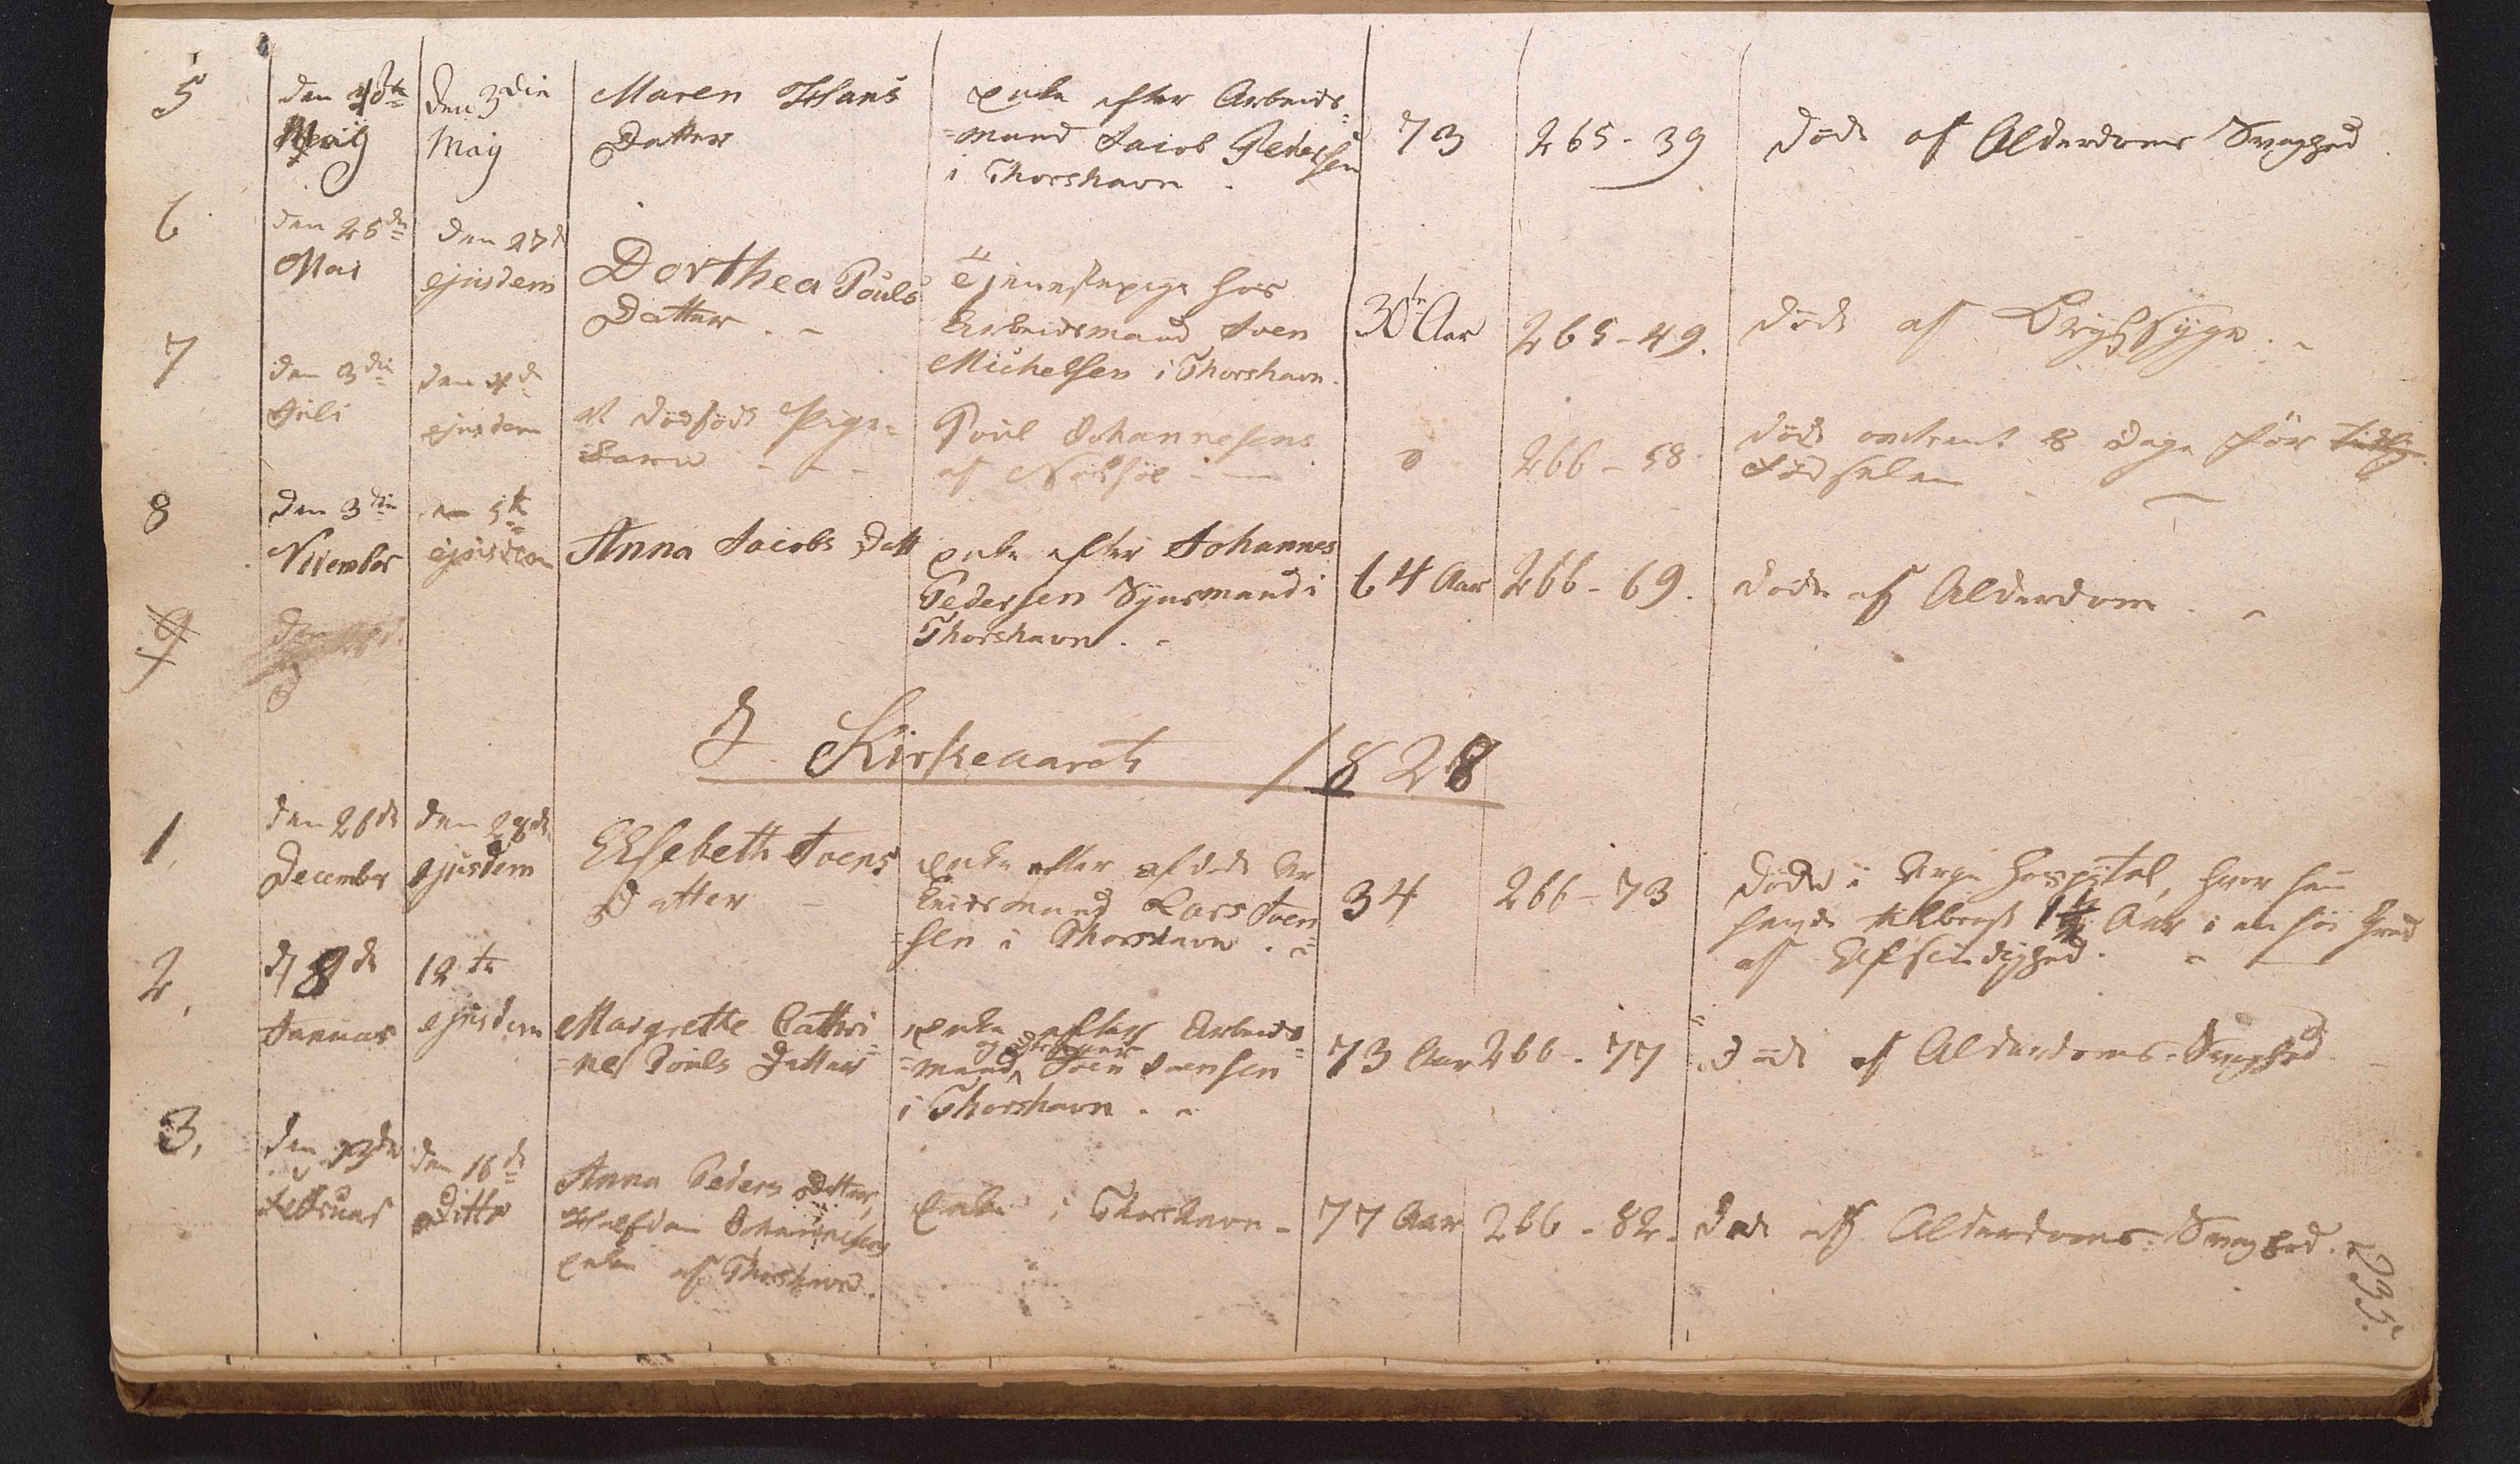 5
den 1ste
May
den 3die
May
Maren Hans
Datter
Enke efter Arbeids
=mand Jacob Peder
sen
i Thorshavn
73
265-39
døde af Alderdoms Svaghed
6
den 25de
Mai
den 27d
ejusdem
Dorthea Pouls
Datter
Tjenestepige hos
Arbeidsmand Joen
Michelsen i Thorshavn.
30te Aar
265-49.
døde af Brystsyge
7
den 3die
Juli
den 4de
ejusdem
et dødfødt Pige=
barn
Poul Johannesens
af Nolsøe
0
266-58
døde omtrent 8 Dage før
Fødselen
8
den 3die
November
den 5te
ejusdem
Anna Jacobs Datt
Enke efter Johannes
Pedersen Synsmand i
Thorshavn
64 Aar
266-69.
døde af Alderdom
9
den
Kirkeaaret 1828
1.
den 26de
December
den 28de
ejusdem
Elsebeth Joens
Datter
Enke efter afdøde Ar
beidsmand Lars Joen
=sen i Thorshavn
34
266-73
døde i Arge Hospital, hvor hun
havde tilbragt 1½ Aar i en høi Grad
af Afsindighed.
2.
d 8de
Januar
12te
ejusdem
Margrethe Cathri=
=ne Pouls Datter
Enke efter Arbeids=
og
=mand Joen Joensen
i Thorshavn
73 Aar
266-77
døde af Alderdoms=Svaghed
3.
den
Februar
den 16de
Ditto
Anna Peders Datter,
Halfdan Johannesens
Enke af Thorshavn.
Enke i Thorshavn
77 Aar
266-82.
døde af Alderdoms=Svaghed.
235.